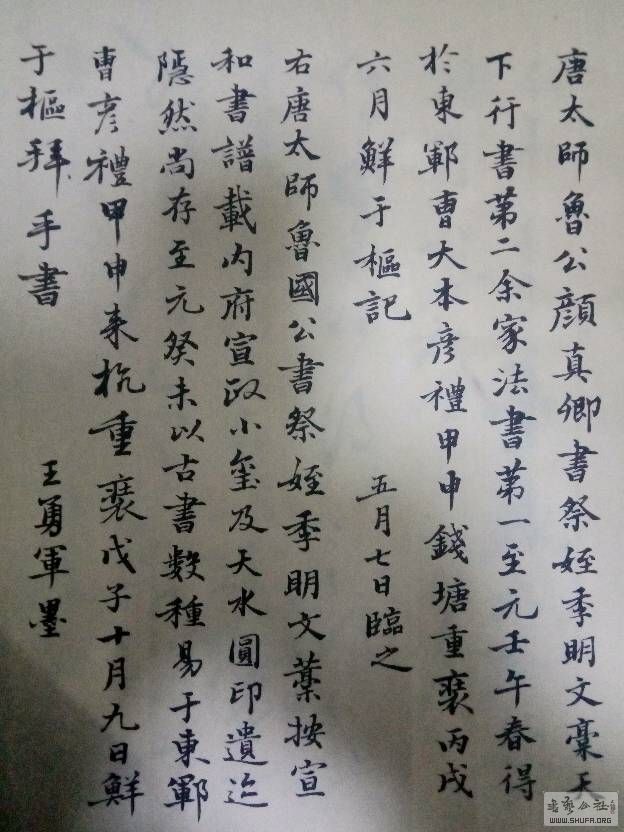 唐太師魯公顏真卿書祭姪季明文稾天
下行書第二余家法書第一至元壬午春得
於東鄆曹大本彦禮甲申錢塘重裝丙戌
六月鮮于樞記
五月七日臨之
右唐太師魯國公書祭姪季明文藁按宣
和書譜載內府宣政小璽及天水圓印遺迹
隱然尚存至元癸未以古書數種易于東鄆
曹彦禮甲申來杭重裝戊子十月九日鮮
于樞拜手書
王勇軍墨
書藝公社
WWW.SHUFA.ORG